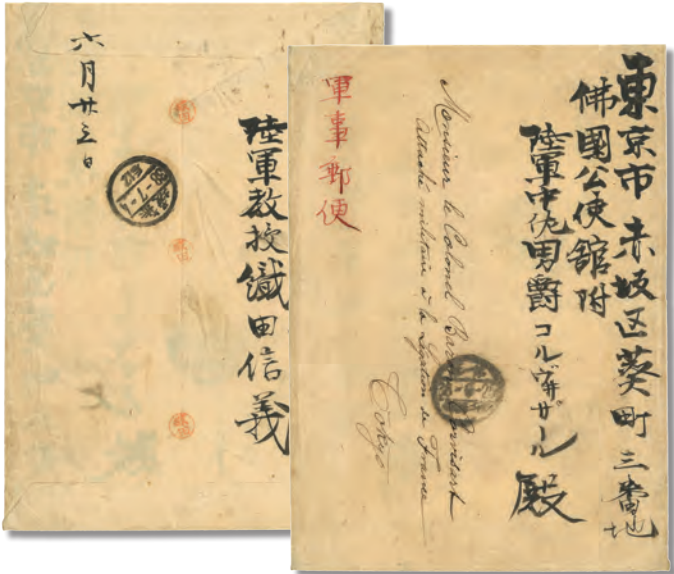 六月廿三日
陸軍教授織田信義
東京市赤坂区葵町三番地
佛國公使館附
陸軍中佐男爵コルヴィザール殿
Monsieur le Colonel Baron Corvisart
attaché militaire à la Légation de France
Tokyo
軍事郵便